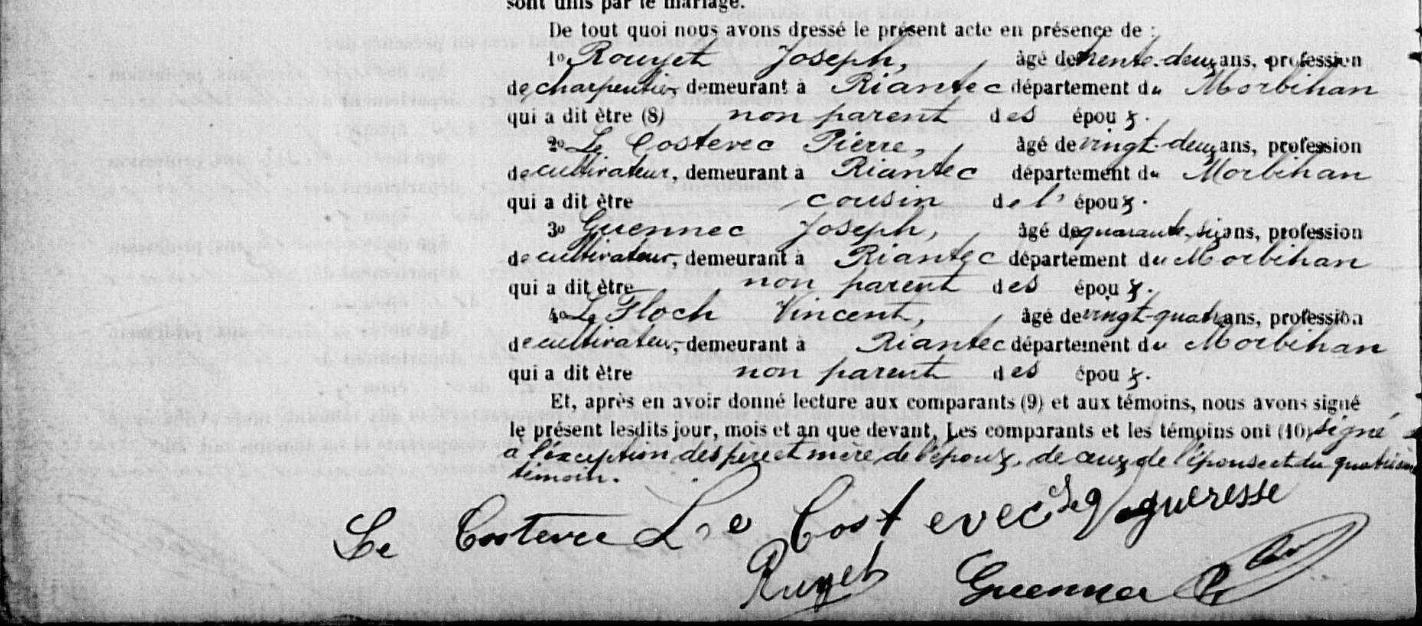 sont unis par le mariage.
De tout quoi nous avons dressé le présent acte en présence de :
1o Rouzet Joseph, âgé de trente-deux ans, profession
de charpentier, demeurant à Riantec département du Morbihan
qui a dit être (8) non parent des époux.
2o Le Costevec Pierre, âgé de vingt-deux ans, profession
de cultivateur, demeurant à Riantec département du Morbihan
qui a dit être cousin de l' époux.
3o Guennec Joseph, âgé de quarante-six ans, profession
de cultivateur, demeurant à Riantec département du Morbihan
qui a dit être non parent des époux.
4o Le Floch Vincent, âgé de vingt-quatre ans, profession
de cultivateur, demeurant à Riantec département du Morbihan
qui a dit être non parent des époux.
Et, après en avoir donné lecture aux comparants (9) et aux témoins, nous avons signé
le présent lesdits jour, mois et an que devant. Les comparants et les témoins ont (10) signé
à l'exception des père et mère de l'époux, de ceux de l'épouse et du quatrième
témoin.
Le Costevec Le Costevec
Guennec